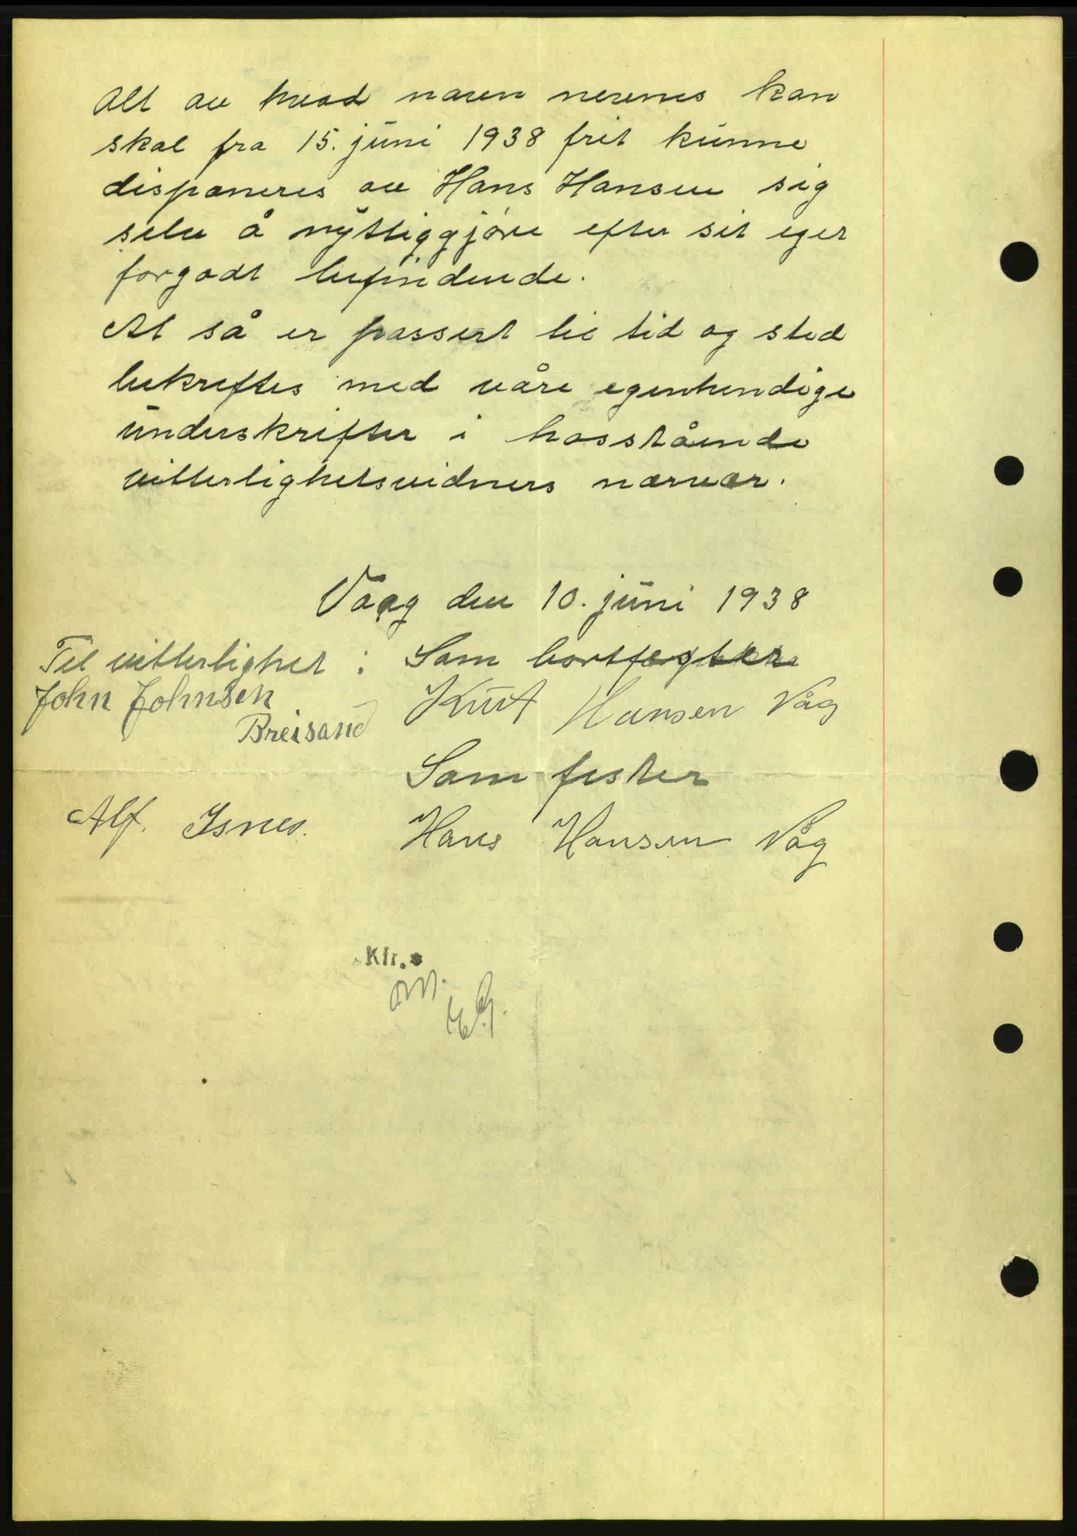 Alt av hvad naven nevenes kan
skal fra 15. juni 1938 frit kunne
disponeres av Hans Hansen sig
selv å nyttiggjøre efter sit eget
forgodt befindende.
At så er passert tie tid og sted
bekreftes med våre egenhendige
underskrifter i hosstående
vitterlighetsvidners nærvær.
Vaag den 10. juni 1938
Til vitterlighet : Som bortfegster
John Johnsen Knut Hansen Våg
Breisand
Som fester
Alf. Isnes. Hans Hansen Våg
Kfr.